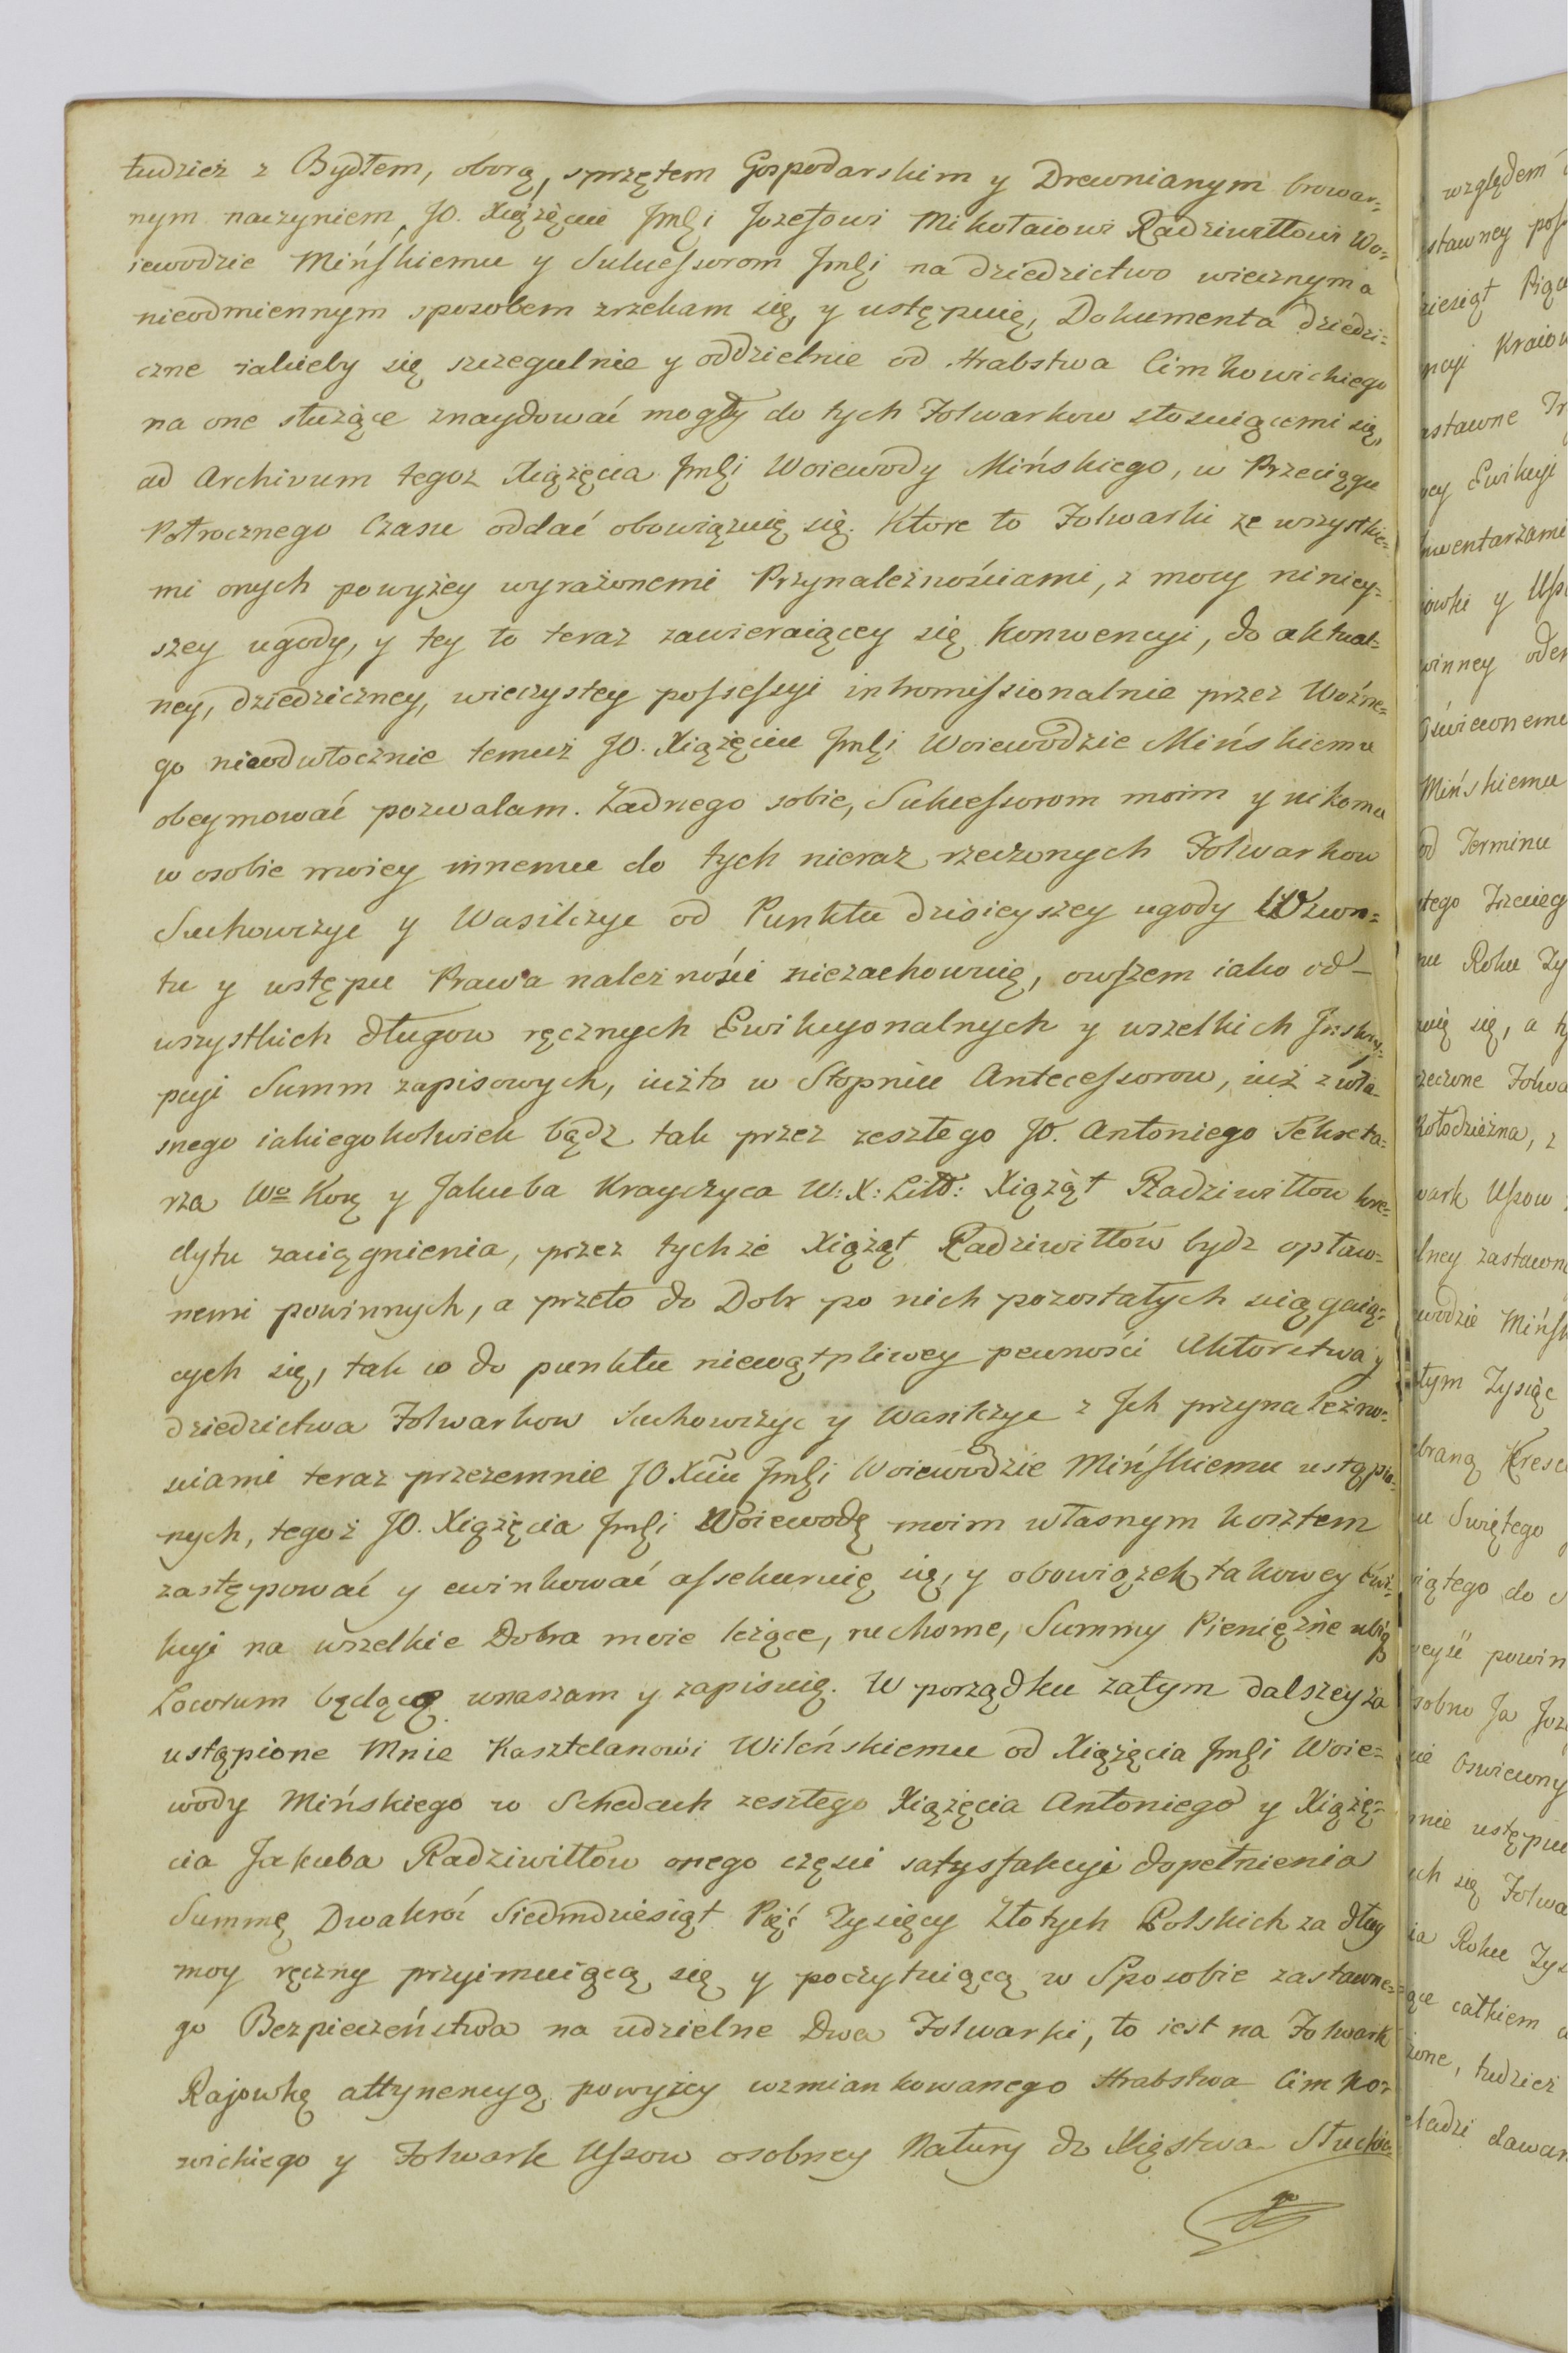 tudzież z Bydłem, oborą, sprzętem Gospodarskim y Drewnianym browar=
nym naczyniem, JO. Xiążęciu Jmći Jozefowi Mikołaiowi Radziwiłłowi Wo=
iewodzie Mińskiemu y Sukcessorom Jmći na dziedzictwo wiecznym a
nieodmiennym sposobem zrzekam się, y ustępuię, Dokumenta dziedzi=
czne iakieby się szczegulnie y oddzielnie od Hrabstwa Cimkowickiego
na one służące znaydować mogły do tych Folwarkow stosuiącemi się,
ad Archivum tegoz Xiążęcia Jmći Woiewody Mińskiego, w Przeciągu
Połrocznego Czasu oddać obowiązuię się. Ktore to Folwarki ze wszystkie=
mi onych powyżey wyrażonemi Przynależnościami, z mocy niniey=
szey ugody, y tey to teraz zawieraiącey się Konwencyi, do aktual=
ney, dziedziczney, wieczystey possessyi intromissionalnie przez Woźne=
go nieodwłocznie temuż JO. Xiążęciu Jmći Woiewodzie Mińskiemu
obeymować pozwalam. Żadnego sobie, Sukcessorom moim y nikomu
w osobie moiey innemu do tych nieraz rzeczonych Folwarkow
Suchowczyc y Wasilczyc od Punktu dzisieyszey ugody Wzwo=
tu y ustępu Prawa należności niezachowuię, owszem iako od
wszystkich długow ręcznych Ewikcyonalnych y wszelkich Jnskry=
pcyi Summ zapisowych, iużto w Stopniu Antecessorow, iuż z wła=
snego iakiegokolwiek bądz tak przez zeszłego JO. Antoniego Sekreta=
rza Wo Korę y Jakuba Krayczyca W: X: Litt: Xiążąt Radziwiłłow kre=
dytu zaciągnienia, przez tychże Xiążąt Radziwiłłow bydz opław=
nemi powinnych, a przeto do Dobr po nich pozostałych sciągaią=
cych się, tak co do punktu niewątpliwey pewności Aktorstwa y
dziedzictwa Folwarkow Suchowczyc y Wasilczyc z Jch przynależno=
sciami teraz przezemnie JO Xciu Jmći Woiewodzie Mińskiemu ustąpio=
nych, tegoż JO. Xiążęcia Jmći Woiewodę moim własnym kosztem
zastępować y ewinkować assekuruię się, y obowiązek takowey Ewi=
kcyi na wszelkie Dobra moie leżące, ruchome, Summy Pieniężne ubiq
Locorum będące wnaszam y zapisuię. W porządku zatym dalszey za
ustąpione Mnie Kasztelanowi Wileńskiemu od Xiążęcia Jmći Woie=
wody Mińskiego w Schedach zeszłego Xiążęcia Antoniego y Xiążę=
cia Jakuba Radziwiłłow onego częsci satysfakcyi dopełnienia
Summę Dwakroć Siedmdziesiąt Pięć Tysięcy Złotych Polskich za dług
moy ręczny przyimuiącą się y poczytuiącą w Sposobie zastawne=
go Bezpieczeństwa na udzielne Dwa Folwarki, to iest na Folwark
Rajowkę attynencyą powyżey wzmiankowanego Hrabstwa Cimko=
wickiego y Folwark Uszow osobney Natury do Xięstwa Słuckie=
go
względem
stawney
ziesiąt
Kraiow
Ewikcyi
nwentarzami
owki y
winney
Mińskiemu
od Terminu
nu Roku
się, a
zeczone
z
wark Uszow
lney
wodzie
tym Tysiąc
Swiętego
iątego do
powin
osobno Ja
mnie
się
Roku
całkiem
tudzież